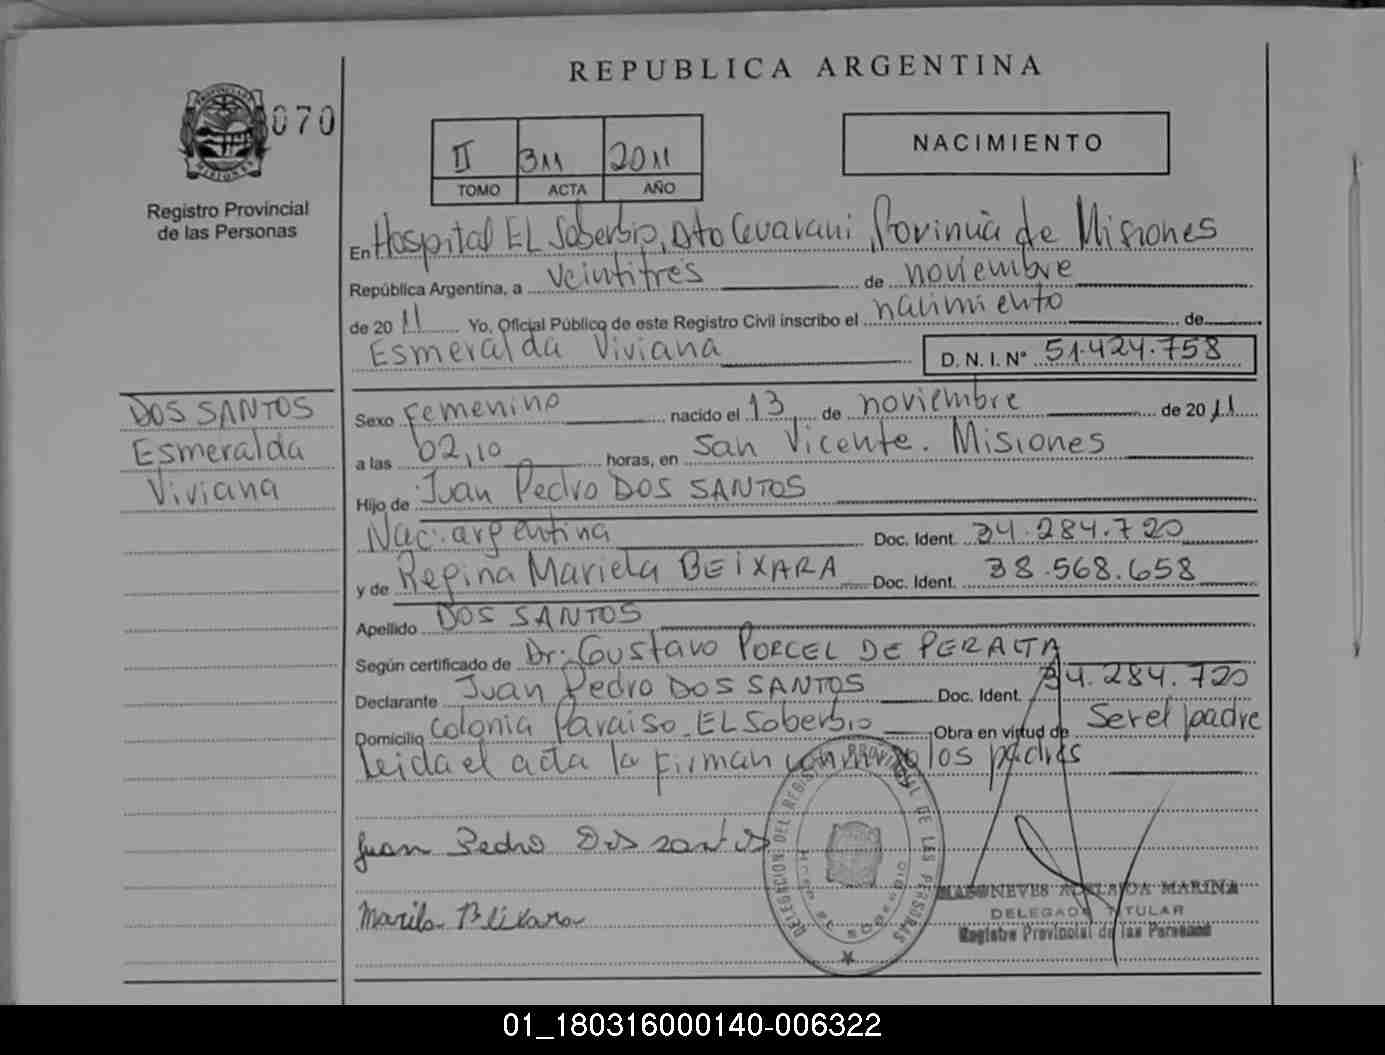 REPUBLICA ARGENTINA
PROVINCIA DE
MISIONES
070
Registro Provincial
de las Personas
II 311 2011
TOMO ACTA AÑO
NACIMIENTO
En Hospital EL Soberbio, Dto Guarani, Provincia de Misiones
República Argentina, a veintitres de noviembre
de 2011 Yo, Oficial Público de este Registro Civil inscribo el nacimiento de
Esmeralda Viviana D. N. I. N° 51.424.758
DOS SANTOS
Esmeralda
Viviana
Sexo femenino nacido el 13 de noviembre de 2011
a las 02,10 horas, en San Vicente. Misiones
Hijo de Juan Pedro DOS SANTOS
Nac. argentina Doc. Ident. 34.284.720
y de Regina Mariela BEIXARA Doc. Ident. 38.568.658
Apellido DOS SANTOS
Según certificado de Dr. Gustavo PORCEL DE PERALTA
Declarante Juan Pedro DOS SANTOS Doc. Ident. 34.284.720
Domicilio Colonia Paraiso. EL Soberbio Obra en virtud de Ser el padre
Leida el acta la firman conmigo los padres
Juan Pedro Dos santos
Marila Beixara
DELEGACION DEL REGISTRO PROVINCIAL DE LAS PERSONAS
ADELAIDA MARINA
DELEGADO TITULAR
Registro Provincial de las Personas
01_180316000140-006322